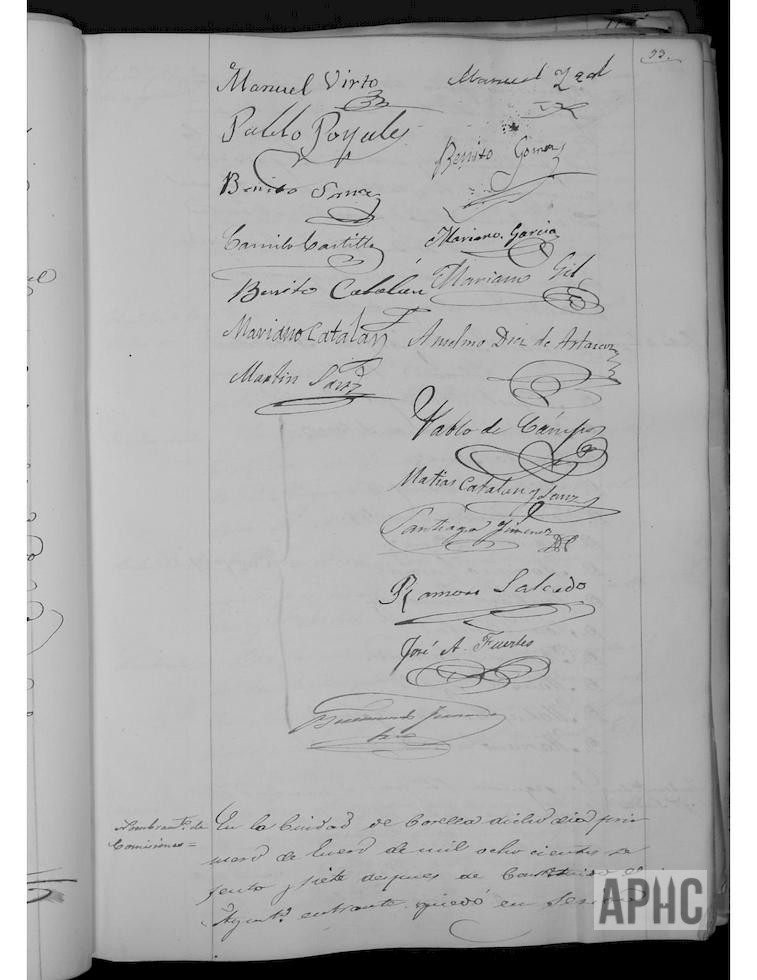 33.
Manuel Virto
Manuel Zeal
Pablo Poyales
Benito Gomez
Benito
Camilo Castilla
Mariano Garcia
Benito Catalán
Mariano Gil
Mariano Catalan
Anselmo Diez de Artazcoz
Martin Sanz
Pablo de Campos
Matias Catalan y Sanz
Santiago Jimenez
Ramon Salcedo
José A. Fuertes
Nombramto. de
Comisiones =
En la Ciudad de Corella dicho dia pri
mero de Enero de mil ocho cientos se
senta y siete despues de Constituido el
Ayunto. entrante quedó en Sesion
APHC